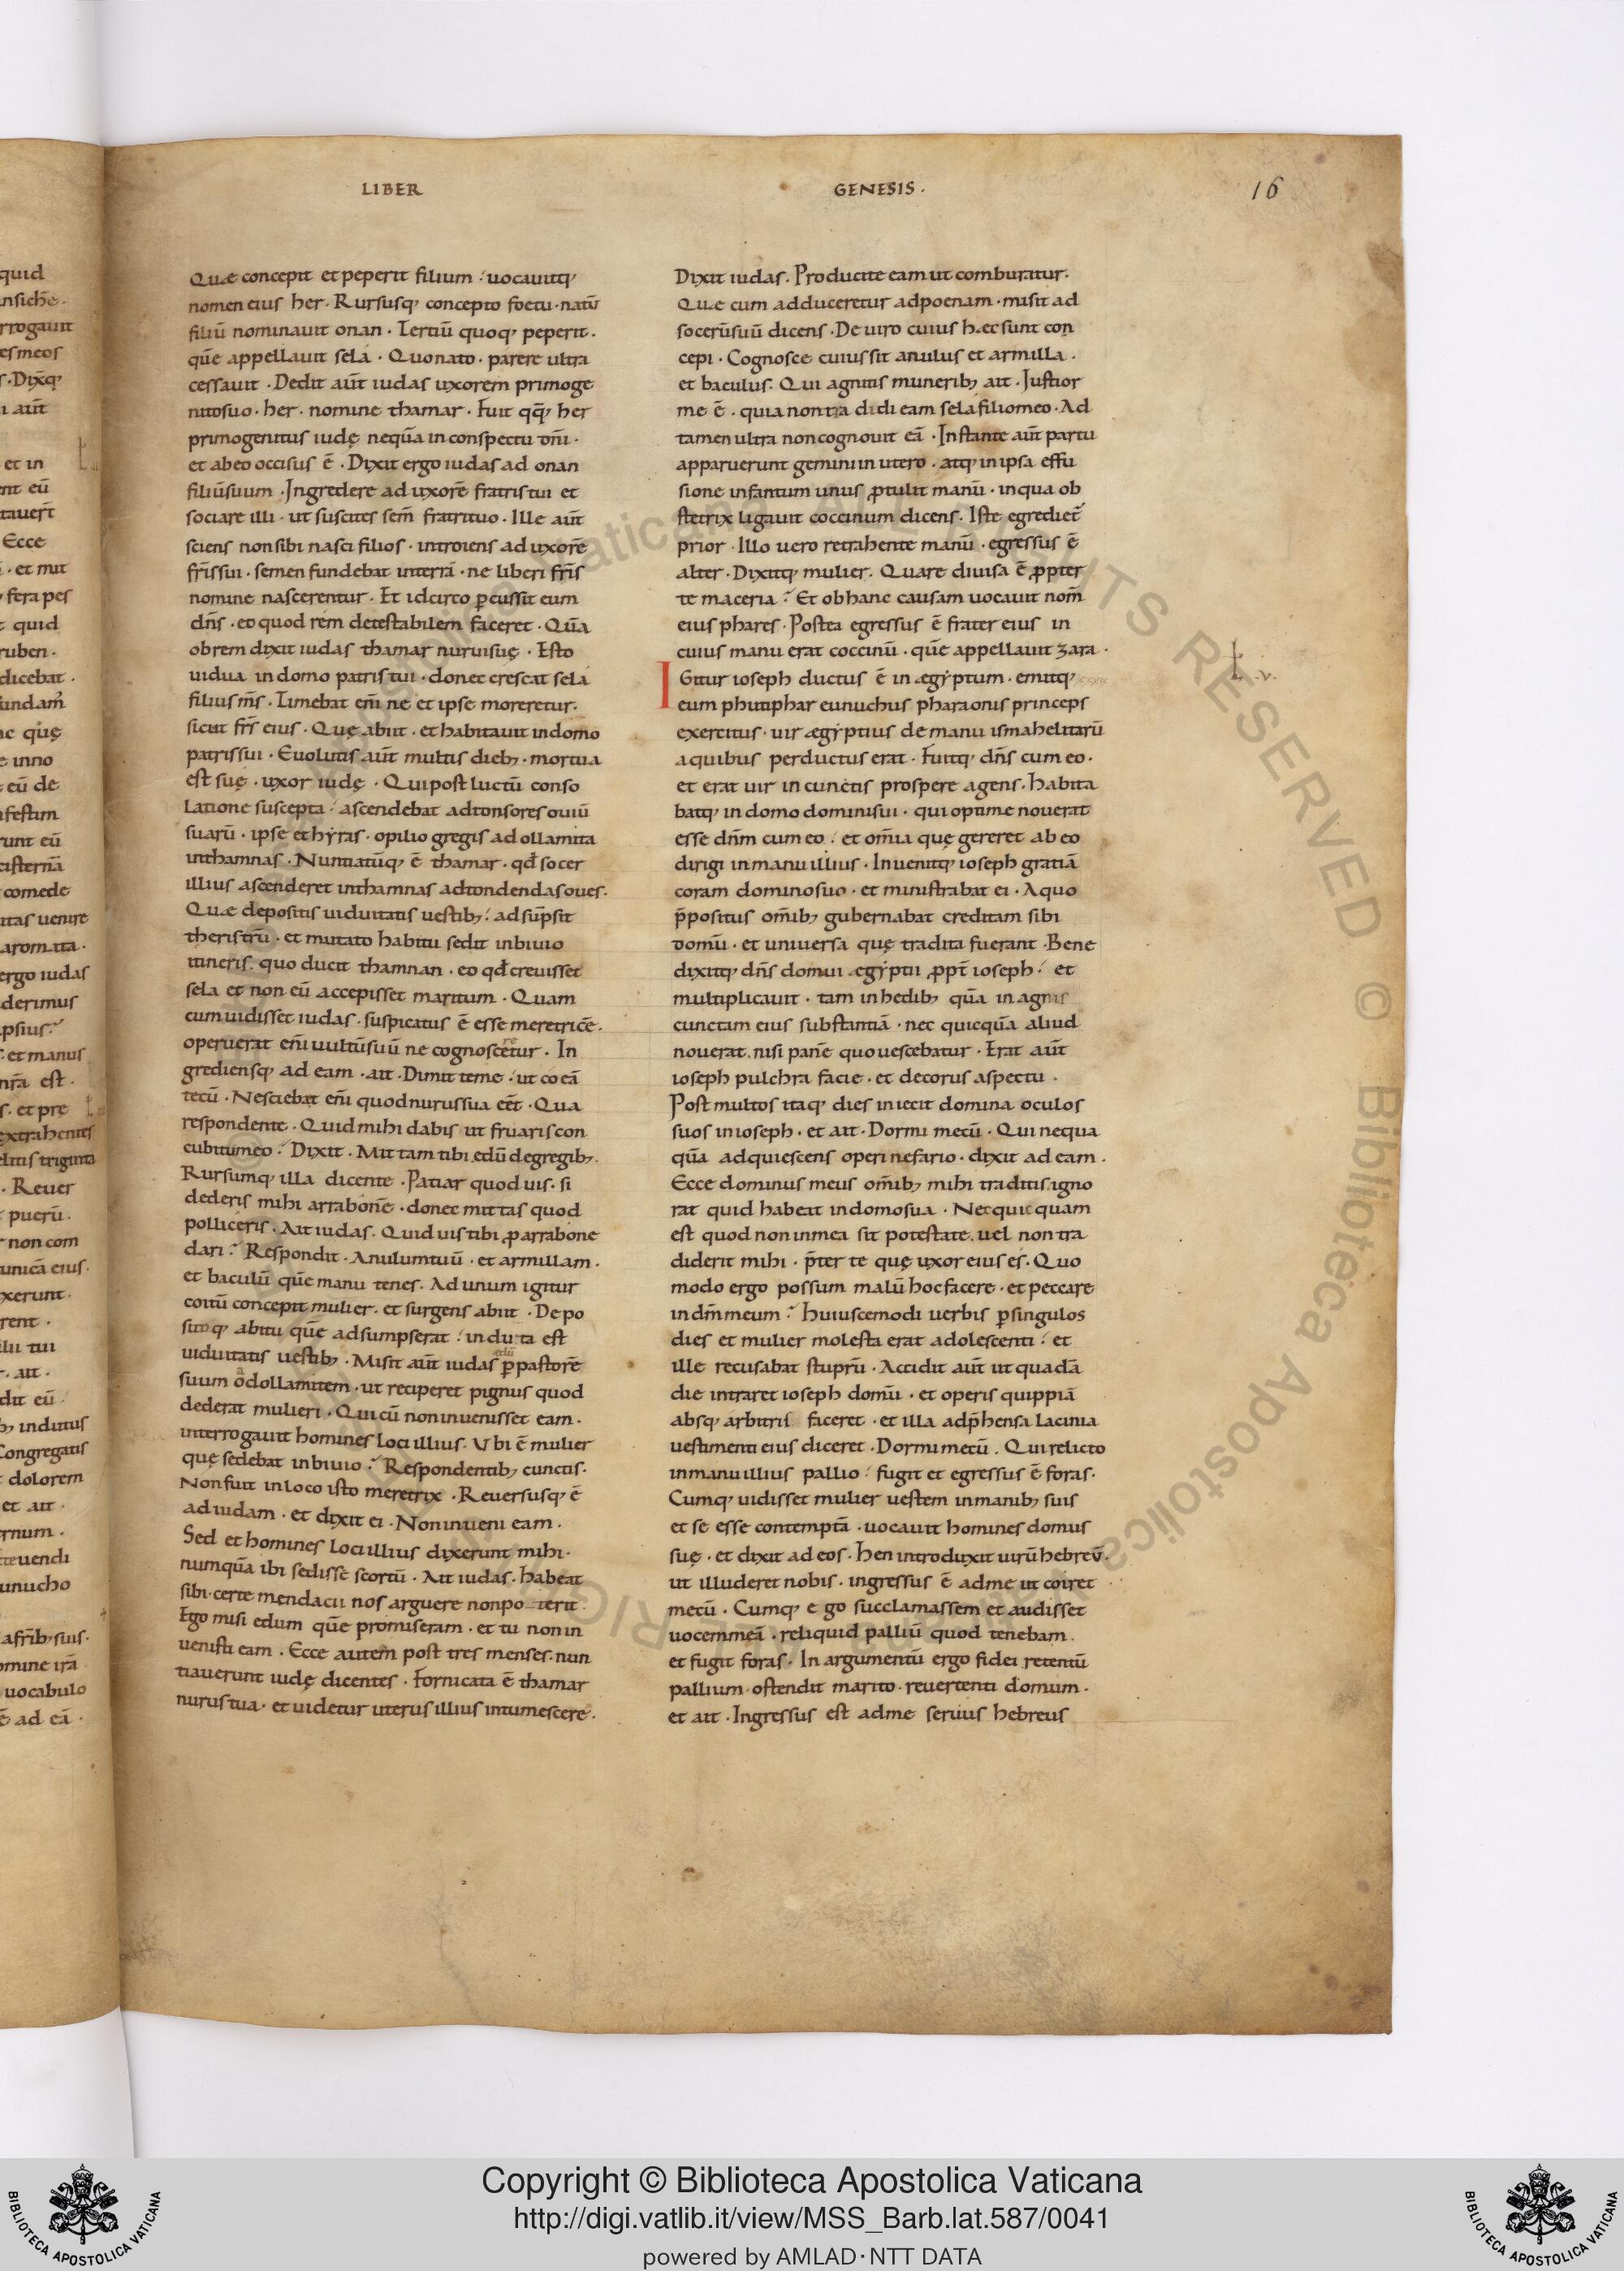 LIBER GENESIS. 16
quid
nsichē.
rrogauit
es meos
s. Dixq;
aut̄
et in
ent eū
tauert̄
Ecce
et mit
fera pes
quid
ruben.
dicebat.
undam̄
quę
inno
eū de
festim
runt eū
cisternā
comede
itas uenire
aromata.
ergo iudas
derimus
psius.
et manus
nr̄a est.
et pre
extrahentes
elitis triginta
Reuer
puerū.
non com
tunicā eius.
xerunt.
rent.
lii tui
ait.
dit eū.
indutus
Congregatis
dolorem
et ait.
rnum.
uendi
unucho
a fr̄ib; suis.
omine irā
uocabulo
ad eā.
Quae concepit et peperit filium. uocauitq;
nomen eius her. Rursusq; concepto foetu. natū
filiū nominauit onan. Tertiū quoq; peperit.
quē appellauit sela. Quo nato. parere ultra
cessauit. Dedit aut̄ iudas uxorem primoge
nito suo. her. nomine thamar. Fuit qq; her
primogenitus iudę nequā in conspectu dn̄i.
et ab eo occisus ē. Dixit ergo iudas ad onan
filiū suum. Ingredere ad uxorē fratris tui et
sociare illi. ut suscites sem̄ fratri tuo. Ille aut̄
sciens non sibi nasci filios. introiens ad uxorē
fr̄is sui. semen fundebat in terrā. ne liberi fr̄is
nomine nascerentur. Et idcirco p̱cussit eum
dn̄s. eo quod rem detestabilem faceret. Quā
obrem dixit iudas thamar nurui suę. Esto
uidua in domo patris tui. donec crescat sela
filius m̄s. Timebat eni̅ ne et ipse moreretur.
sicut fr̄s eius. Quę abiit. et habitauit in domo
patris sui. Euolutis aut̄ multis dieb; mortua
est suę. uxor iudę. Qui post luctū conso
latione suscepta. ascendebat ad tonsores ouiū
suarū. ipse et hyras. opilio gregis adollamita
in thamnas. Nuntiatūq; ē thamar. qd̄ socer
illius ascenderet in thamnas ad tondendas oues.
Quae depositis uiduitatis uestib;. adsūpsit
theristrū. et mutato habitu sedit in biuio
itineris. quo ducit thamnan. eo qd̄ creuisset
sela et non eū accepisset maritum. Quam
cum uidisset iudas. suspicatus ē esse meretricē.
operuerat eni̅ uultū suū ne cognosceretur. In
grediensq; ad eam. ait. Dimitte me. ut coeā
tecū. Nesciebat eni̅ quod nurus sua eēt. Qua
respondente. Quid mihi dabis ut fruaris con
cubitu meo? Dixit. Mittam tibi edū de gregib;.
Rursumq; illa dicente. Patiar quod uis. si
dederis mihi arrabonē. donec mittas quod
polliceris. Ait iudas. Quid uis tibi ꝓ arrabone
dari? Respondit. Anulum tuū. et armillam.
et baculū quē manu tenes. Ad unum igitur
coitū concepit mulier. et surgens abiit. Depo
sitoq; abitu quē adsumpserat. induta est
uiduitatis uestib;. Misit aut̄ iudas edū p̱ pastorē
suum odollamitem. ut reciperet pignus quod
dederat mulieri. Qui cū non inuenisset eam.
interrogauit homines loci illius. Vbi ē mulier
quę sedebat in biuio? Respondentib; cunctis.
Non fuit in loco isto meretrix. Reuersusq; ē
ad iudam. et dixit ei. Non inueni eam.
Sed et homines loci illius dixerunt mihi.
numquā ibi sedisse scortū. Ait iudas. habeat
sibi. certe mendacii nos arguere non poterit.
Ego misi edum quē promiseram. et tu non in
uenisti eam. Ecce autem post tres menses. nun
tiauerunt iudę dicentes. Fornicata ē thamar
nurus tua. et uidetur uterus illius intumescere.
Dixit iudas. Producite eam ut comburatur.
Quae cum adduceretur ad poenam. misit ad
socerū suū dicens. De uiro cuius haec sunt con
cepi. Cognosce cuius sit anulus et armilla.
et baculus. Qui agnitis munerib; ait. Iustior
me ē. quia non tradidi eam sela filio meo. At
tamen ultra non cognouit eā. Instante aut̄ partu
apparuerunt gemini in utero. atq; in ipsa effu
sione infantum unus ꝓtulit manū. in qua ob
stetrix ligauit coccinum dicens. Iste egrediet̄
prior. Illo uero retrahente manū. egressus ē
alter. Dixitq; mulier. Quare diuisa ē ꝓpter
te maceria? Et ob hanc causam uocauit nom̄
eius phares. Postea egressus ē frater eius in
cuius manu erat coccinū. quē appellauit zara.
IGitur ioseph ductus ē in ægyptum. emitq;
eum phutiphar eunuchus pharaonis princeps
exercitus. uir ægyptius de manu ismahelitarū
a quibus perductus erat. Fuitq; dn̄s cum eo.
et erat uir in cunctis prospere agens. habita
batq; in domo domini sui. qui optime nouerat
esse dn̄m cum eo. et om̄ia quę gereret ab eo
dirigi in manu illius. Inuenitq; ioseph gratiā
coram domino suo. et ministrabat ei. A quo
p̄positus om̄ib; gubernabat creditam sibi
domū. et uniuersa quę tradita fuerant. Bene
dixitq; dn̄s domui ægyptii ꝓpt̄ ioseph. et
multiplicauit. tam in hedib; quā in agris
cunctam eius substantiā. nec quicquā aliud
nouerat. nisi panē quo uescebatur. Erat aut̄
ioseph pulchra facie. et decorus aspectu.
Post multos itaq; dies iniecit domina oculos
suos in ioseph. et ait. Dormi mecū. Qui nequa
quā adquiescens operi nefario. dixit ad eam.
Ecce dominus meus om̄ib; mihi traditis. igno
rat quid habeat in domo sua. Nec quicquam
est quod non in mea sit potestate. uel non tra
diderit mihi. p̄ter te quę uxor eius es. Quo
modo ergo possum malū hoc facere. et peccare
in dm̄ meum? huiuscemodi uerbis p̱ singulos
dies et mulier molesta erat adolescenti. et
ille recusabat stuprū. Accidit aut̄ ut quadā
die intraret ioseph domū. et operis quippiā
absq; arbitris faceret. et illa adp̄hensa lacinia
uestimenti eius diceret. Dormi mecū. Qui relicto
in manu illius pallio. fugit et egressus ē foras.
Cumq; uidisset mulier uestem in manib; suis
et se esse contemptā. uocauit homines domus
suę. et dixit ad eos. hen introduxit uirū hebreū.
ut illuderet nobis. ingressus ē ad me ut coiret
mecū. Cumq; ego succlamassem et audisset
uocem meā. reliquid palliū quod tenebam.
et fugit foras. In argumentū ergo fidei retentū
pallium. ostendit marito. reuertenti domum.
et ait. Ingressus est ad me seruus hebreus
Copyright © Biblioteca Apostolica Vaticana
http://digi.vatlib.it/view/MSS_Barb.lat.587/0041
powered by AMLAD·NTT DATA
BIBLIOTECA APOSTOLICA VATICANA
BIBLIOTECA APOSTOLICA VATICANA